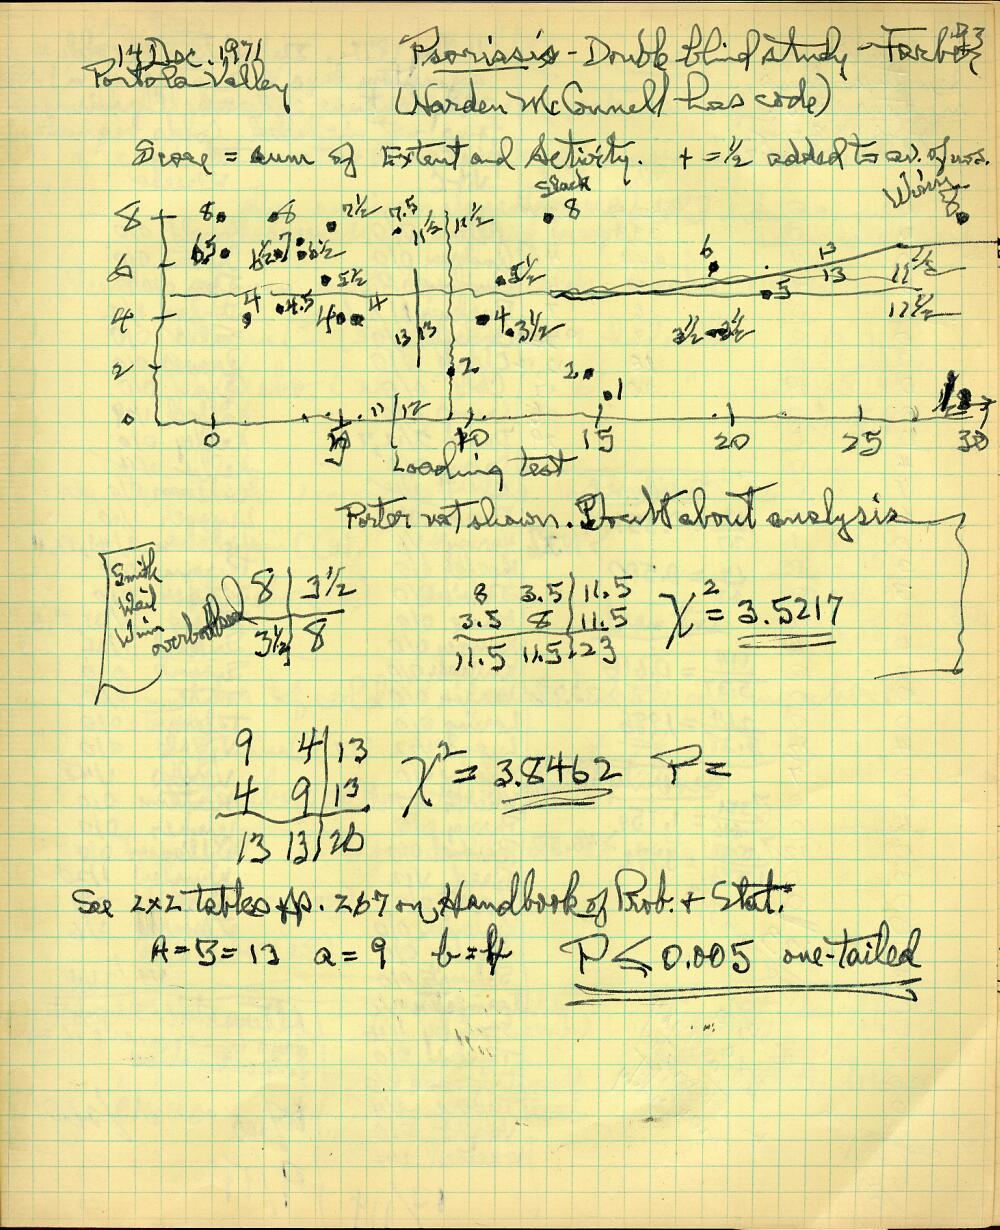 14 Dec. 1971
Portola Valley
Psoriasis - Double blind study - Farber
(Harden McConnell has code)
Score = sum of Extent and Activity. + = ½ added to av. of
Slack
Winn
8 8 8 7½ 7.5 11½ 11½ 8 8
6 6.5 6½ 7 6½ 5½ 5½ 6 13 11½
4 4 4.5 4 4 13 13 4 3½ 3½ 3½ 5 13 11½
2 2 2 1
0 11 12
0 5 10 15 20 25 30
Loading test
Porter not shown. Doubt about analysis
Smith
Weil
Winn
8 3½
3½ 8
8 3.5 11.5
3.5 8 11.5
11.5 11.5 23
χ² = 3.5217
9 4 13
4 9 13
13 13 26
χ² = 3.8462 P =
See 2x2 tables pp. 267 on, Handbook of Prob. + Stat.
A = B = 13 a = 9 b = 4 P ≤ 0.005 one-tailed